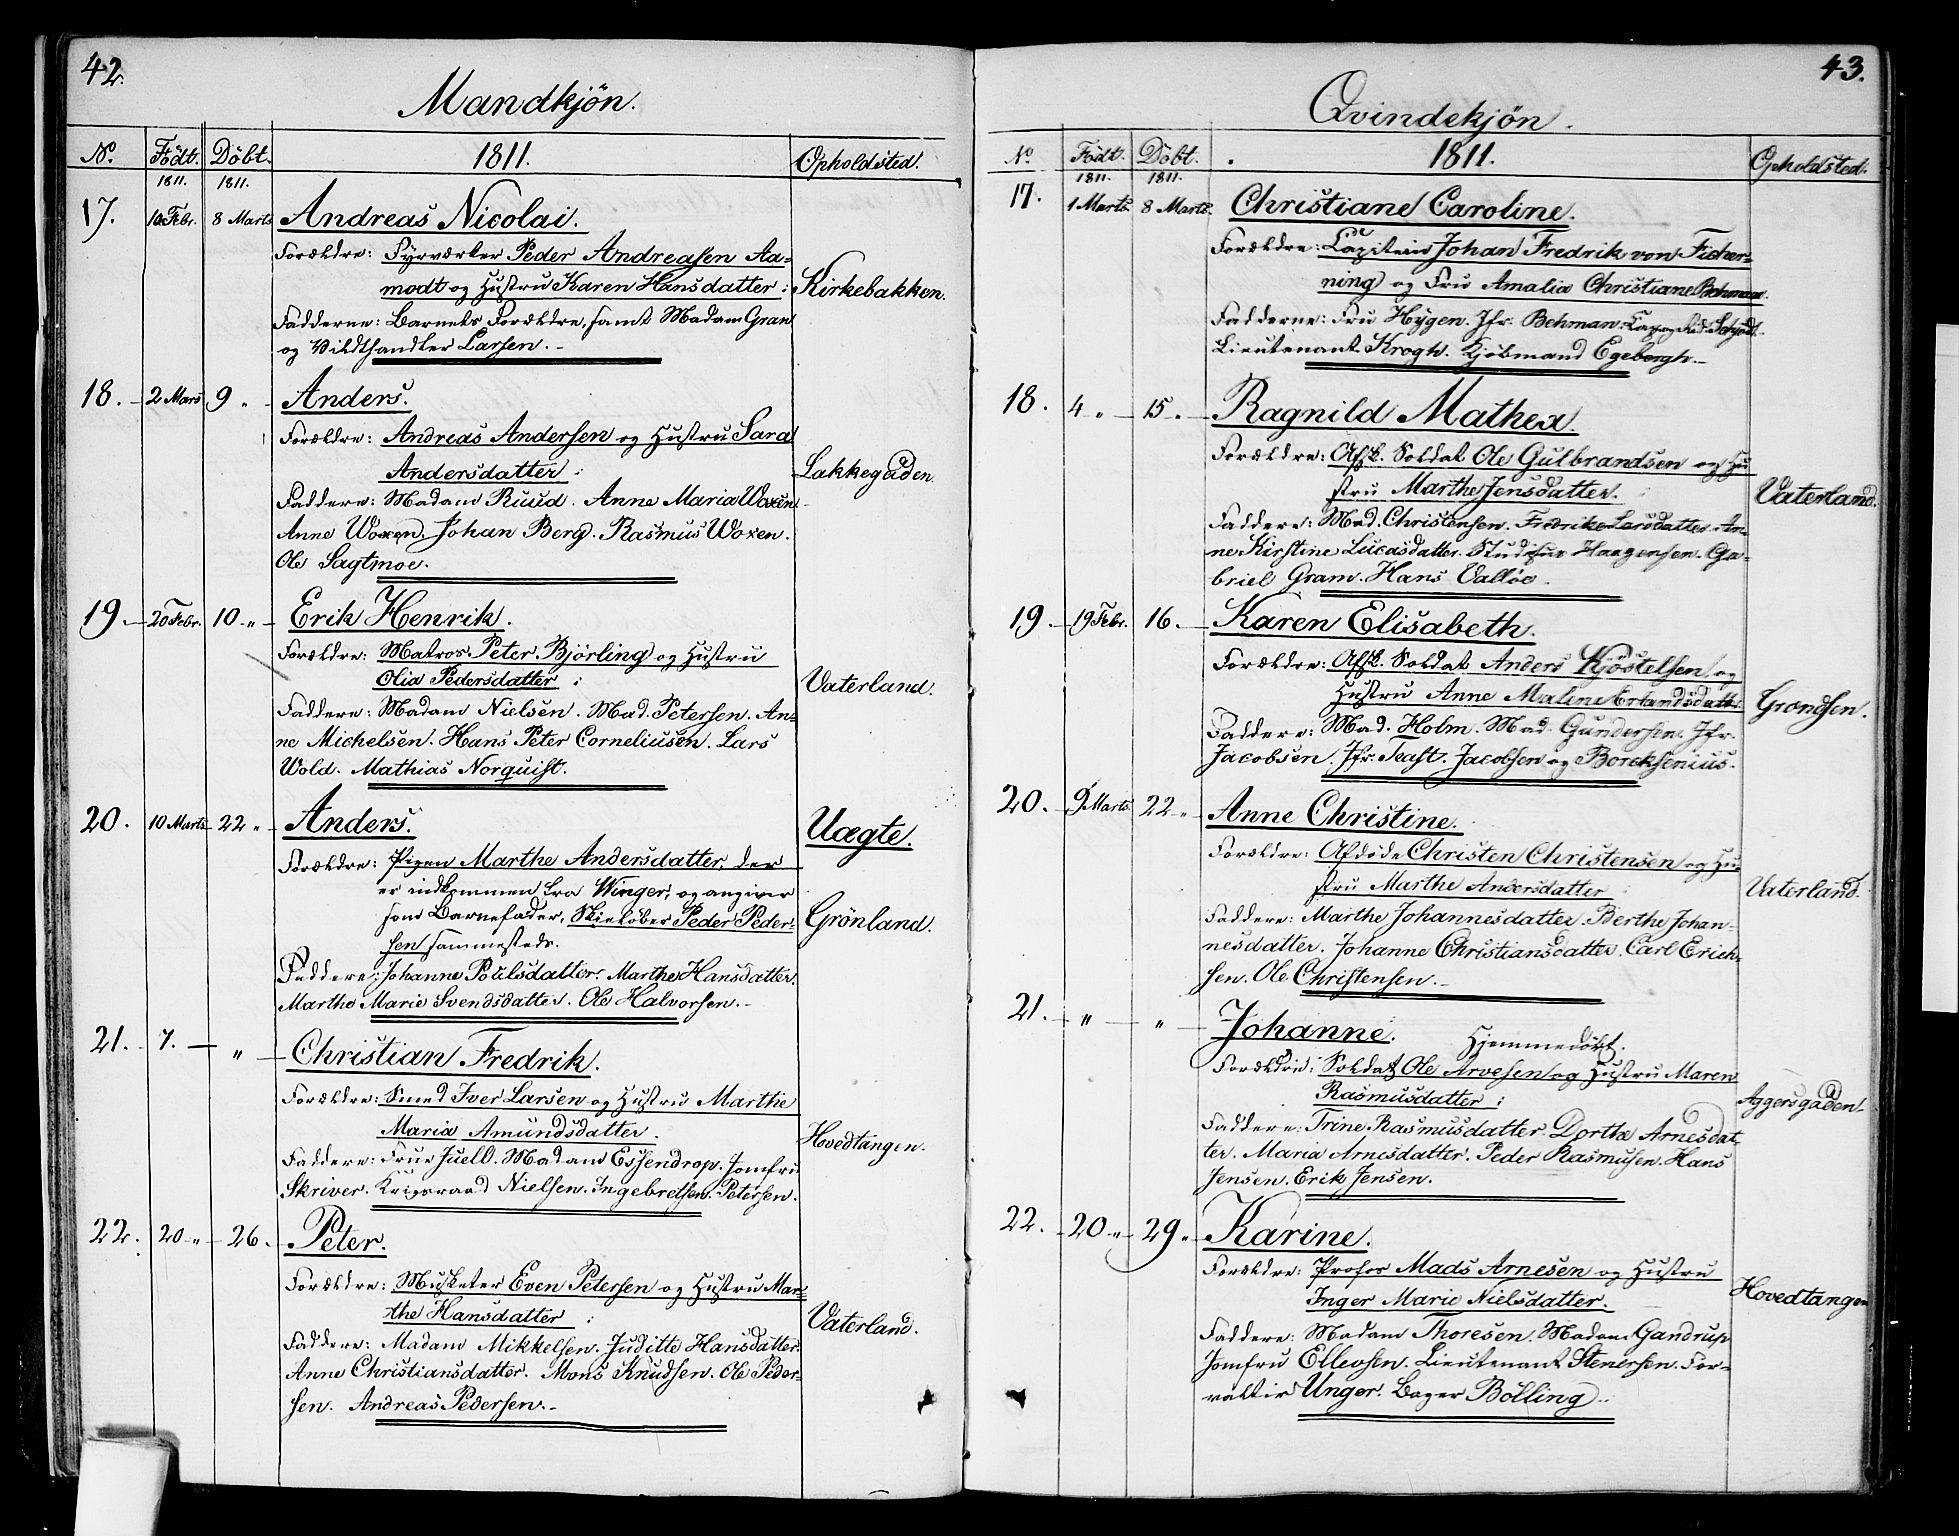 42.
Mandkjön.
No. Födt. Döbt. 1811. Opholdsted.
1811. 1811.
17. 10 Febr. 8 Marts Andreas Nicolai.
Forældre: Fyrværker Peder Andreasen Aa-
modt og Hustru Karen Hansdatter: Kirkebakken.
Fadderne: Barnets Forældre, samt Madam Gran
og Vildthandler Larsen.
18. 2 Mars 9 " Anders.
Forældre: Andreas Andersen og Hustru Sara
Andersdatter: Lakkegaden.
Faddere: Madam Ruud. Anne Maria Woxen
Anne Woxen. Johan Berg. Rasmus Woxen.
Ole Sagtmoe.
19. 20 Febr. 10 " Erik Henrik.
Forældre: Matros Peter Björling og Hustru
Olia Pedersdatter: Vaterland.
Faddere: Madam Nielsen. Mad. Petersen. An-
ne Michelsen. Hans Peter Corneliusen. Lars
Wold. Mathias Norquist.
20. 10 Marts 22 " Anders. Uægte.
Forældre: Pigen Marthe Andersdatter, der
er indkommen fra Winger, og angiver
som Barnefader, Skieløber Peder Peder- Grönland.
sen sammesteds.
Faddere: Johanne Poulsdatter. Marthe Hansdatter.
Marthe Marie Svendsdatter. Ole Halvorsen.
21. 7. " Christian Fredrik.
Forældre: Smed Iver Larsen og Hustru Marthe
Maria Amundsdatter. Hovedtangen.
Faddere: Frue Juell. Madam Essendrop. Jomfru
Skriver. Krigsraad Nielsen. Ingebretsen. Petersen.
22. 20 " 26. Peter.
Forældre: Musketer Even Petersen og Hustru Mar-
the Hansdatter: Vaterland.
Faddere: Madam Mikkelsen. Juditte Hansdatter.
Anne Christiansdatter. Mons Knudsen. Ole Peder-
sen. Andreas Pedersen.
43.
Qvindekjön.
No Födt. Döbt. 1811. Opholdsted.
1811. 1811.
17. 1 Marts. 8 Marts. Christiane Caroline.
Forældre: Capitein Johan Fredrik von
ning og Fru Amalia Christiane Behman.
Fadderne: Fru Hygen. Jfr. Behman.
Lieutenant Krogh. Kjöbmand Egebergh.
18. 4 " 15. Ragnild Mathea.
Forældre: Afsk. Soldat Ole Gulbrandsen og Hu-
stru Marthe Jensdatter. Vaterland.
Faddere: Mad. Christensen. Fredrike Larsdatter. An-
ne Kirstine Lucasdatter. Haagensen. Ga-
briel Gram. Hans Vallöe.
19. 19 Febr. 16. Karen Elisabeth.
Forældre: Afsk. Soldat Anders Kjöstelsen og
Hustru Anne Malene Erlandsdatter. Grondsen.
Faddere: Mad. Holm. Mad. Gundersen. Jfr.
Jacobsen. Jfr. Jacobsen og Borchsenius.
20. 9 Marts. 22 " Anne Christine.
Forældre: Afdöde Christen Christensen og Hu-
stru Marthe Andersdatter Vaterland.
Faddere: Marthe Johannesdatter. Berthe Johan-
nesdatter. Johanne Christiansdatter. Carl Erich-
sen. Ole Christensen.
21. " " Johanne. Hjemmedöbt.
Forældre: Soldat Ole Arvesen og Hustru Maren
Rasmusdatter: Aggersgaden.
Faddere: Trine Rasmusdatter. Dorthe Arnesdat-
ter. Maria Arnesdatter. Peder Rasmusen. Hans
Jensen. Erik Jensen.
22. 20 " 29 " Karine.
Forældre: Profos Mads Arnesen og Hustru
Inger Marie Nielsdatter. Hovedtangen
Faddere: Madam Thoresen. Madam Gandrup
Jomfru Ellevsen. Lieutenant Stenersen. For-
valter Unger. Bager Bölling.